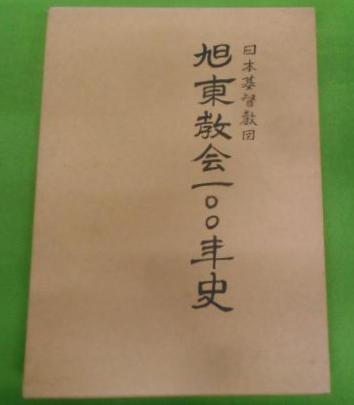 日本基督教団
旭東教会一〇〇年史